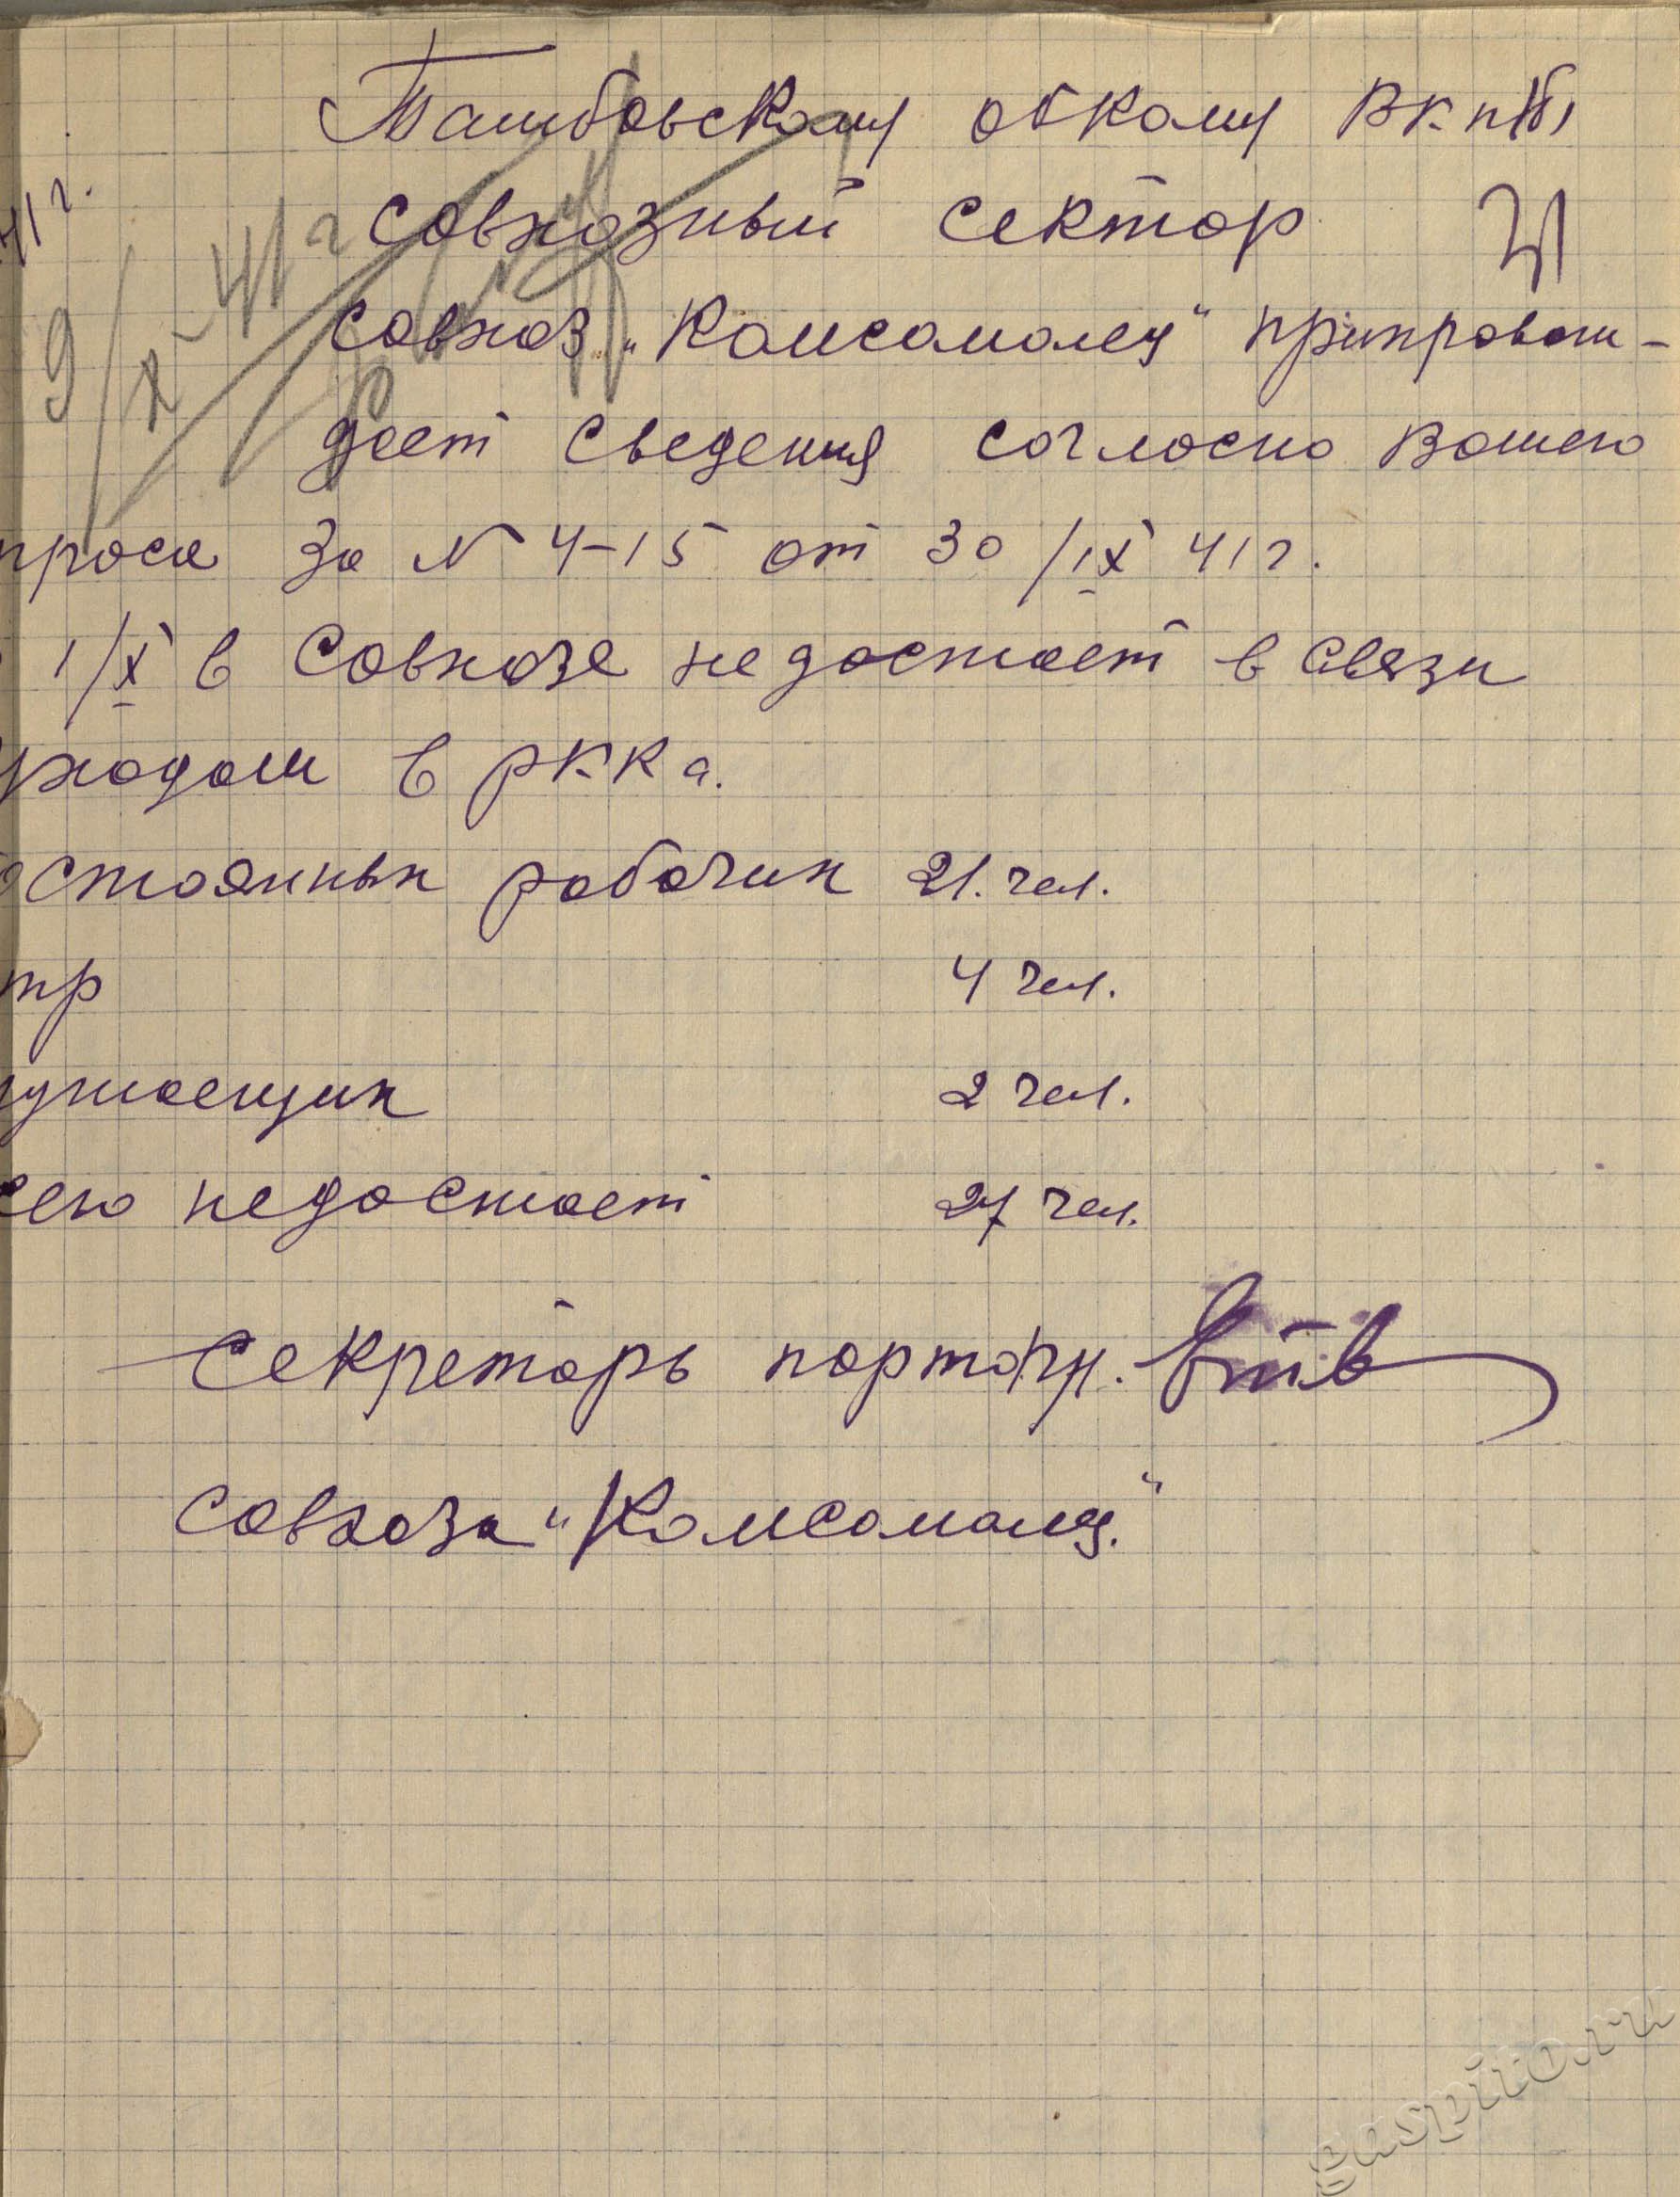 Тамбовскому обкому ВКП(б)
41 г.
совхозный сектор
9/X-41 г
совхоз „Комсомолец" препровож-
дает сведения согласно вашего
проса за N 4-15 от 30/IX 41 г.
1/X в совхозе не достает в связи
уходом в РККА.
остоянных рабочих 21. чел.
тр 4 чел.
ужаещих 2 чел.
сего недостает 27 чел.
Секретарь парторг.
совхоза "Комсомолец."
gaspito.ru